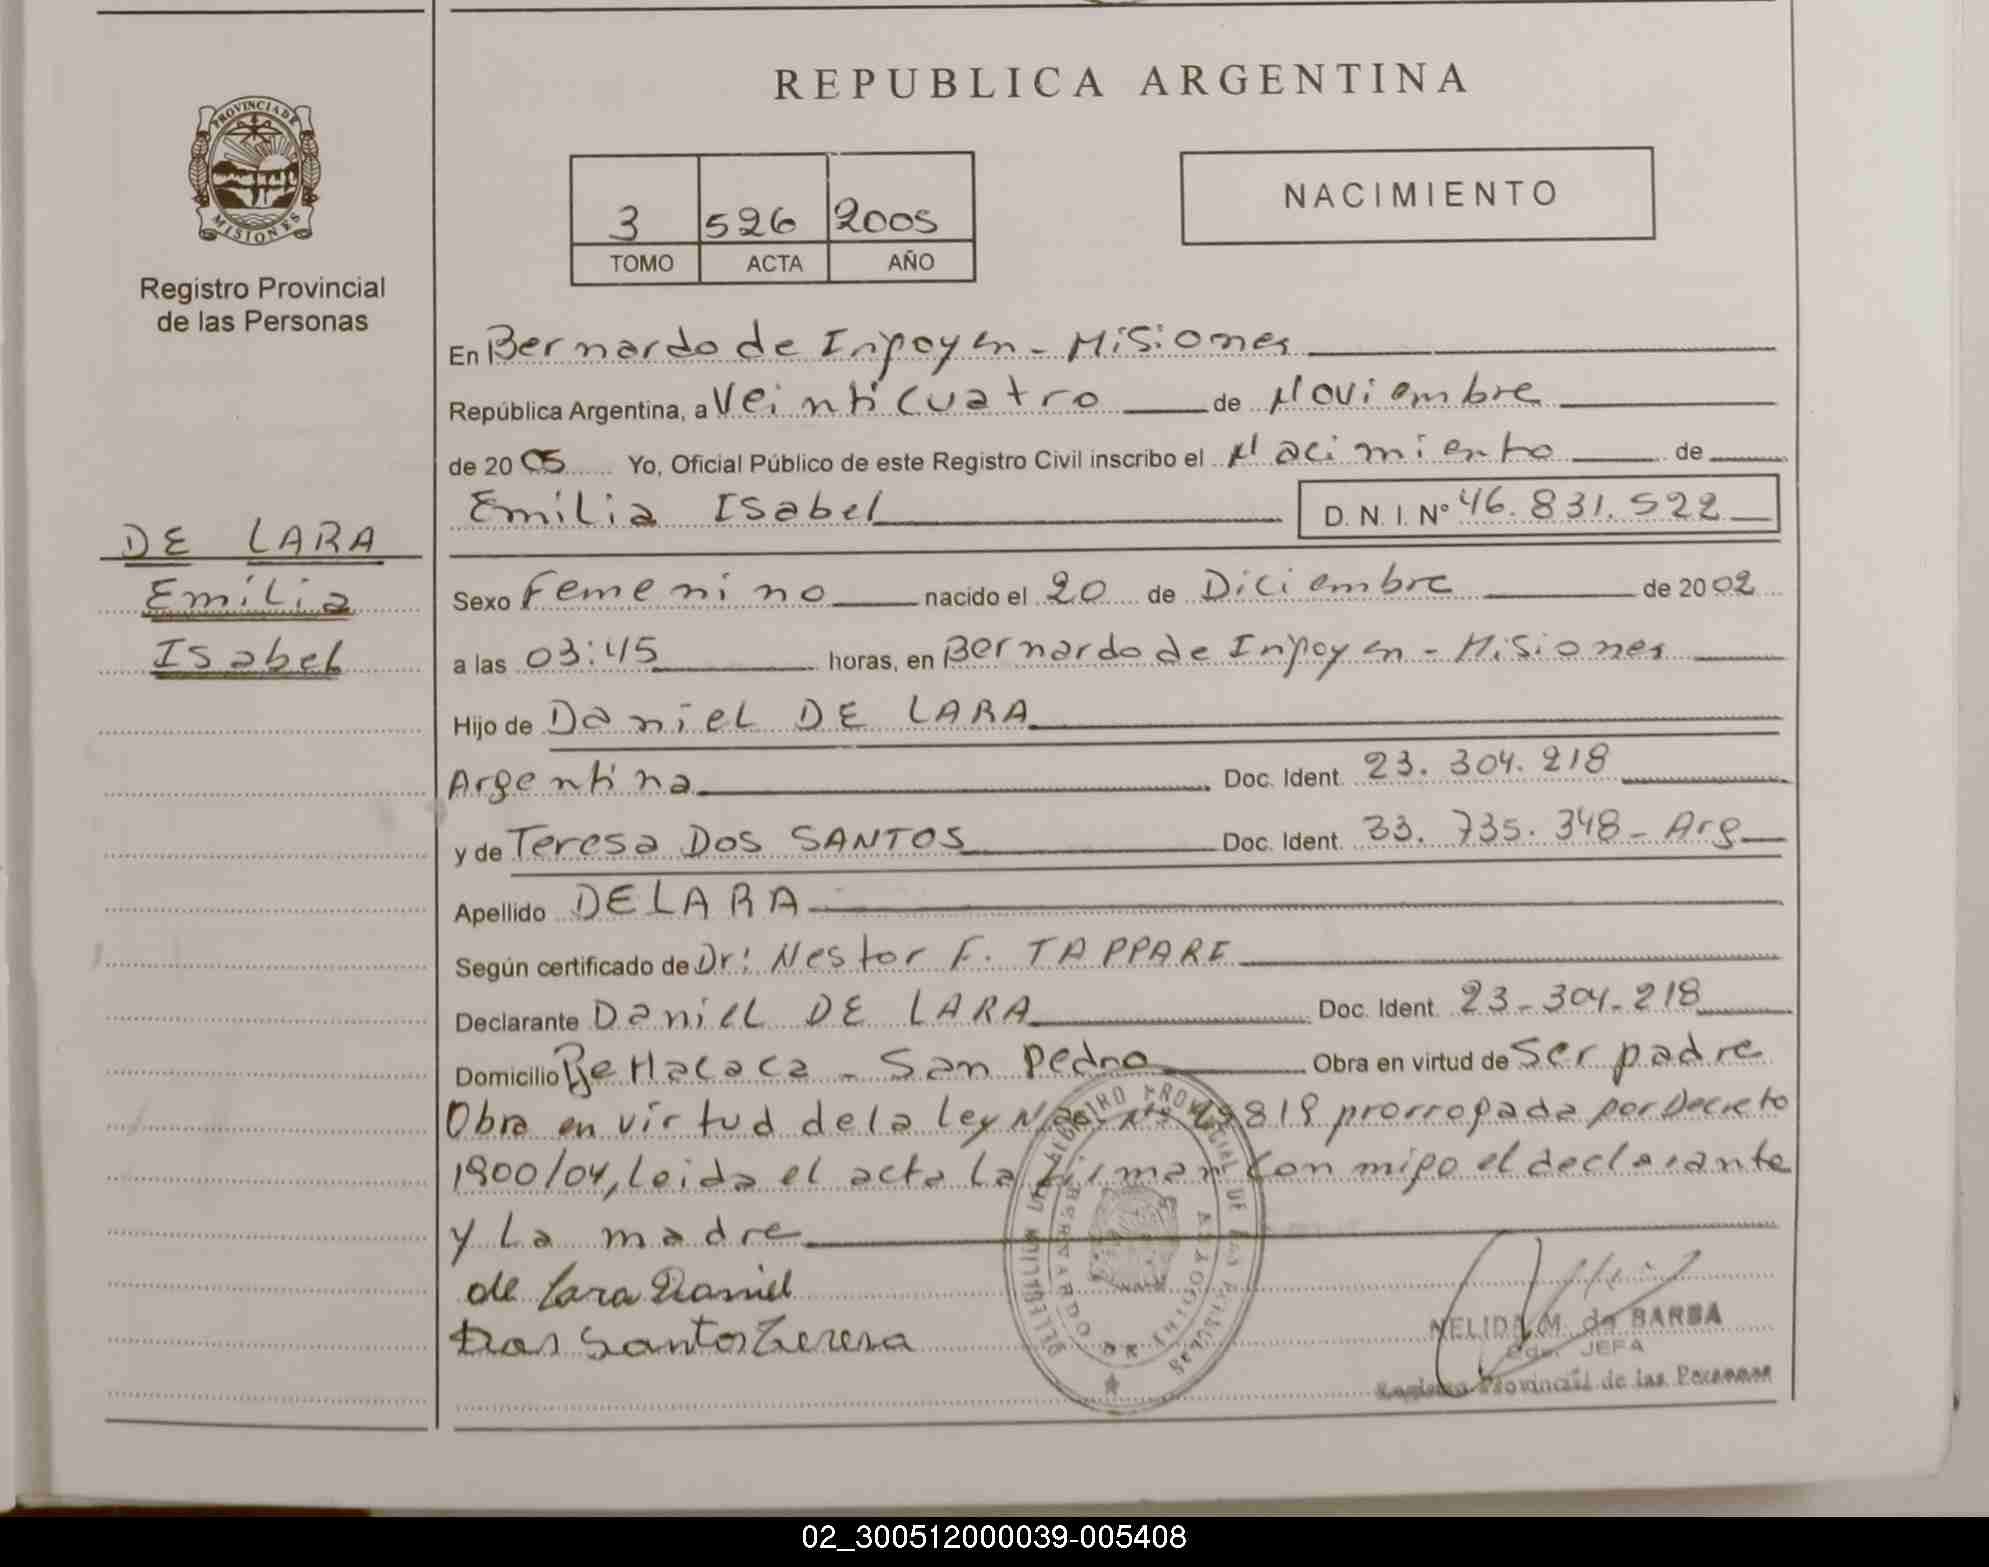 REPUBLICA ARGENTINA
PROVINCIA DE MISIONES
Registro Provincial
de las Personas
3 526 2005
TOMO ACTA AÑO
NACIMIENTO
En Bernardo de Irigoyen - Misiones
República Argentina, a Veinticuatro de Noviembre
de 2005 Yo, Oficial Público de este Registro Civil inscribo el Nacimiento de
Emilia Isabel D. N. I. Nº 46.831.522
DE LARA
Emilia
Isabel
Sexo Femenino nacido el 20 de Diciembre de 2002
a las 03:45 horas, en Bernardo de Irigoyen - Misiones
Hijo de Daniel DE LARA
Argentina Doc. Ident. 23.304.218
y de Teresa DOS SANTOS Doc. Ident. 33.735.348 - Arg
Apellido DE LARA
Según certificado de Dr: Nestor F. TAPPARE
Declarante Daniel DE LARA Doc. Ident. 23-304-218
Domicilio Be Hacaca - San Pedro Obra en virtud de Ser padre
Obra en virtud de la Ley Nac. Nº 19819 prorrogada por Decreto
1900/04, leida el acta la firman con migo el declarante
y la madre
de Lara Daniel
Dos Santos Teresa
NELIDA M. de BARBA
JEFA
Registro Provincial de las Personas
02_300512000039-005408